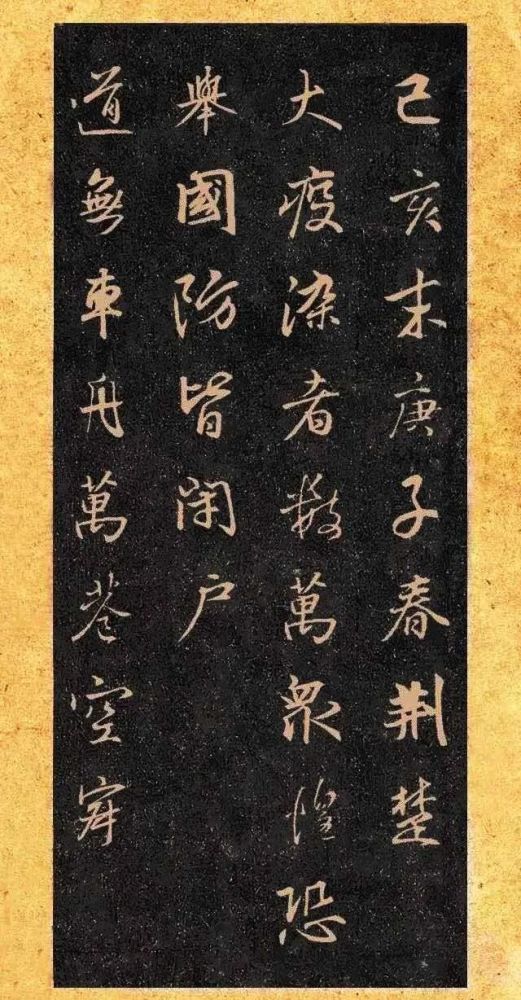 己亥末庚子春荆楚
大疫染者數萬衆惶恐
舉國防皆閉户
道無車舟萬巷空寂